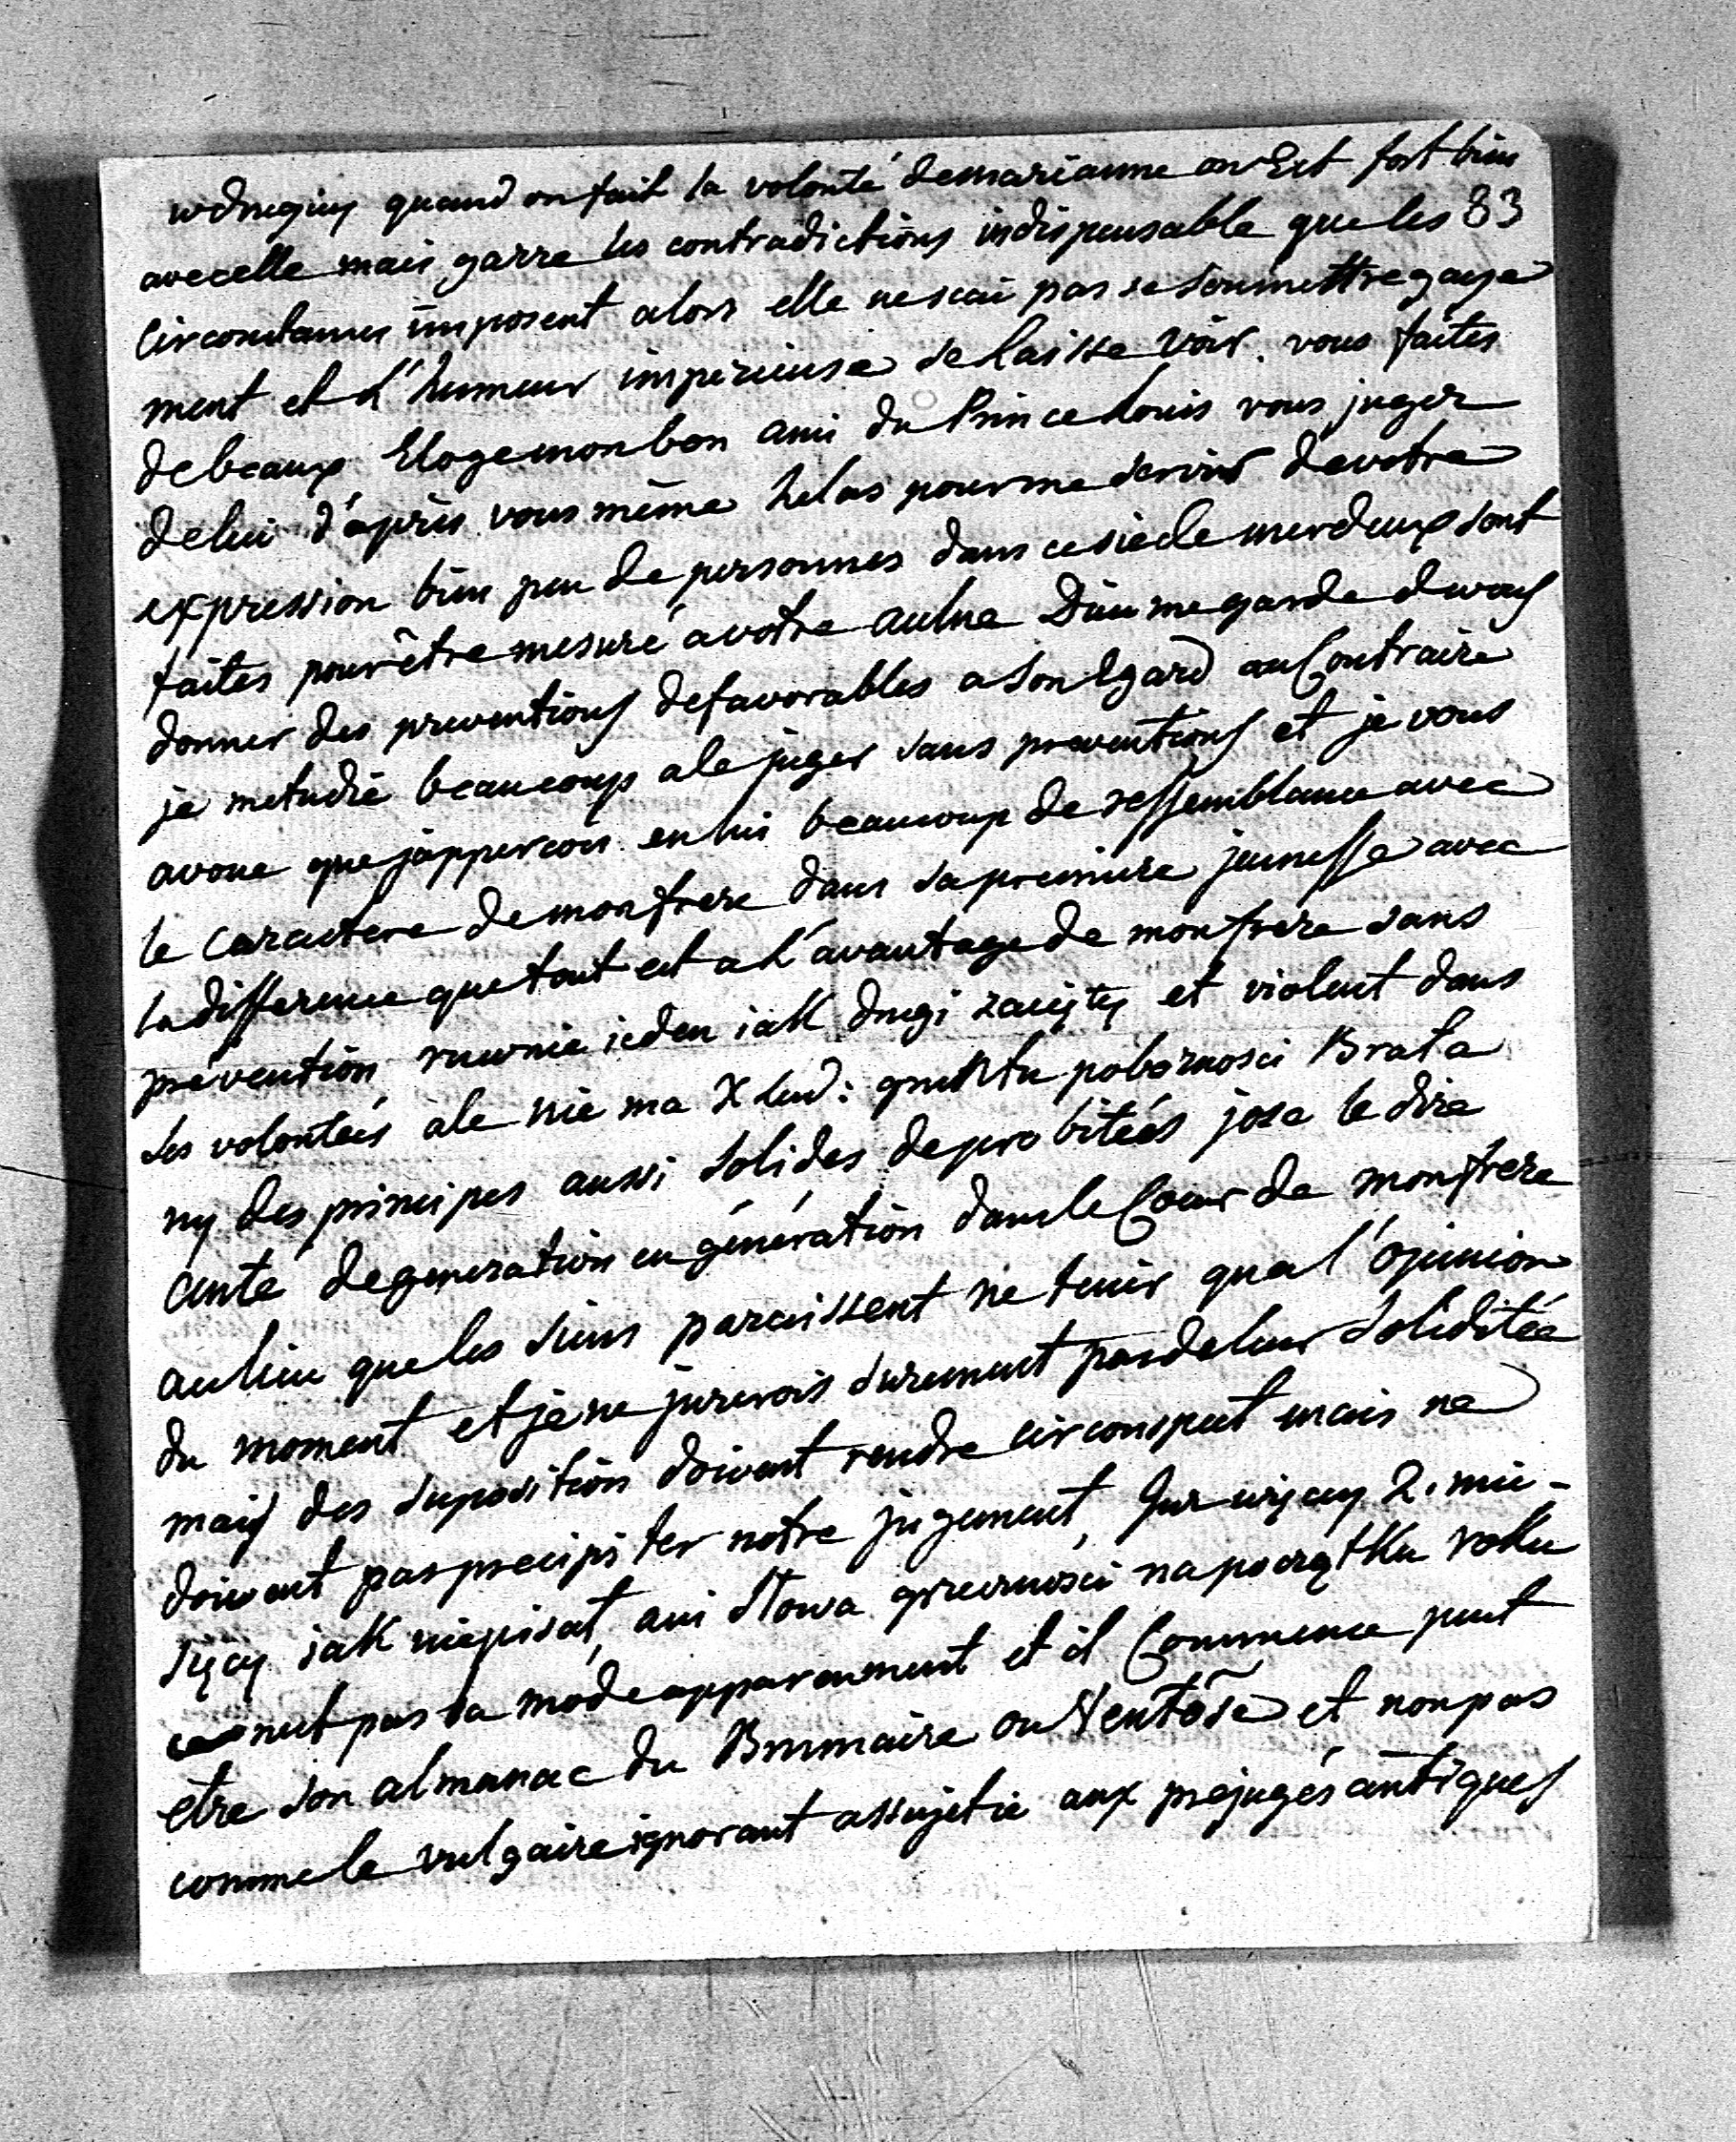 w drugiey quand on fait la volonté de marianne on Est fort bien
83
avec elle mais garre les contradictions indispensable que les
circonstances imposent alors elle ne scai pas se soumettre gaye
ment et l'humeur imperieuse se laisse voir. vous faites
de beaux Eloge mon bon ami du Prince Louis vous juger
de lui d'après vous même helas pour me servir de votre
expression bien peu de personnes dans ce siecle merdeux sont
faites pour être mesuré a votre aulne Dieu me garde d vous
donner des preventions defavorables a son Egard au Contraire
je metudie beaucoup a le juger sans preventions et je vous
avoue que j'appercois en lui beaucoup de ressemblance avec
le caractere de mon frere dans sa premiere jeunesse avec
la difference que tout est a l'avantage de mon frere sans
prévention ruwnie ieden iak drugi zacięty et violent dans
ses volontés ale nie ma X Lud: gruntu pobożnosci Brata
ny des principes aussi solides de probitées jose le dire
anté de generation en génération dans le Coeur de mon frere
au lieu que les siens paroissent ne tenir qua l'opinion
du moment et je ne jurerois surement pas de leur soliditée
mais des suposition doivent rendre circonspect mais ne
doivent pas precipiter notre jugement, więcy 2. mie-
sięcy iak niepisał, ani słowa grzecznosci na początku roku
ce nest pas sa mode apparenment et il Commence peut
etre son almanac du Brumaire ou Ventôse et non pas
comme le vulgaire ignorant assujetie aux préjugés antiques